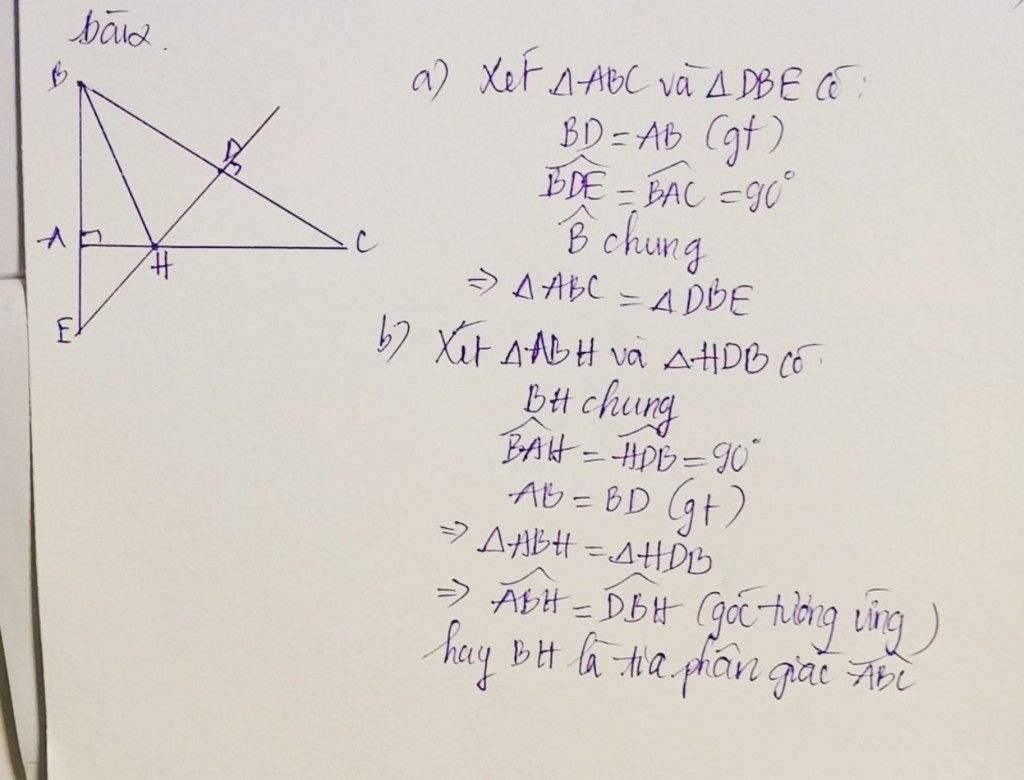 bài 2.
B
D
A
H
C
E
a) Xét ΔABC và ΔDBE có:
BD = AB (gt)
BDE = BAC = 90°
B chung
=> ΔABC = ΔDBE
b) Xét ΔABH và ΔHDB có
BH chung
BAH = HDB = 90°
AB = BD (gt)
=> ΔABH = ΔHDB
=> ABH = DBH (góc tương ứng)
hay BH là tia phân giác ABC